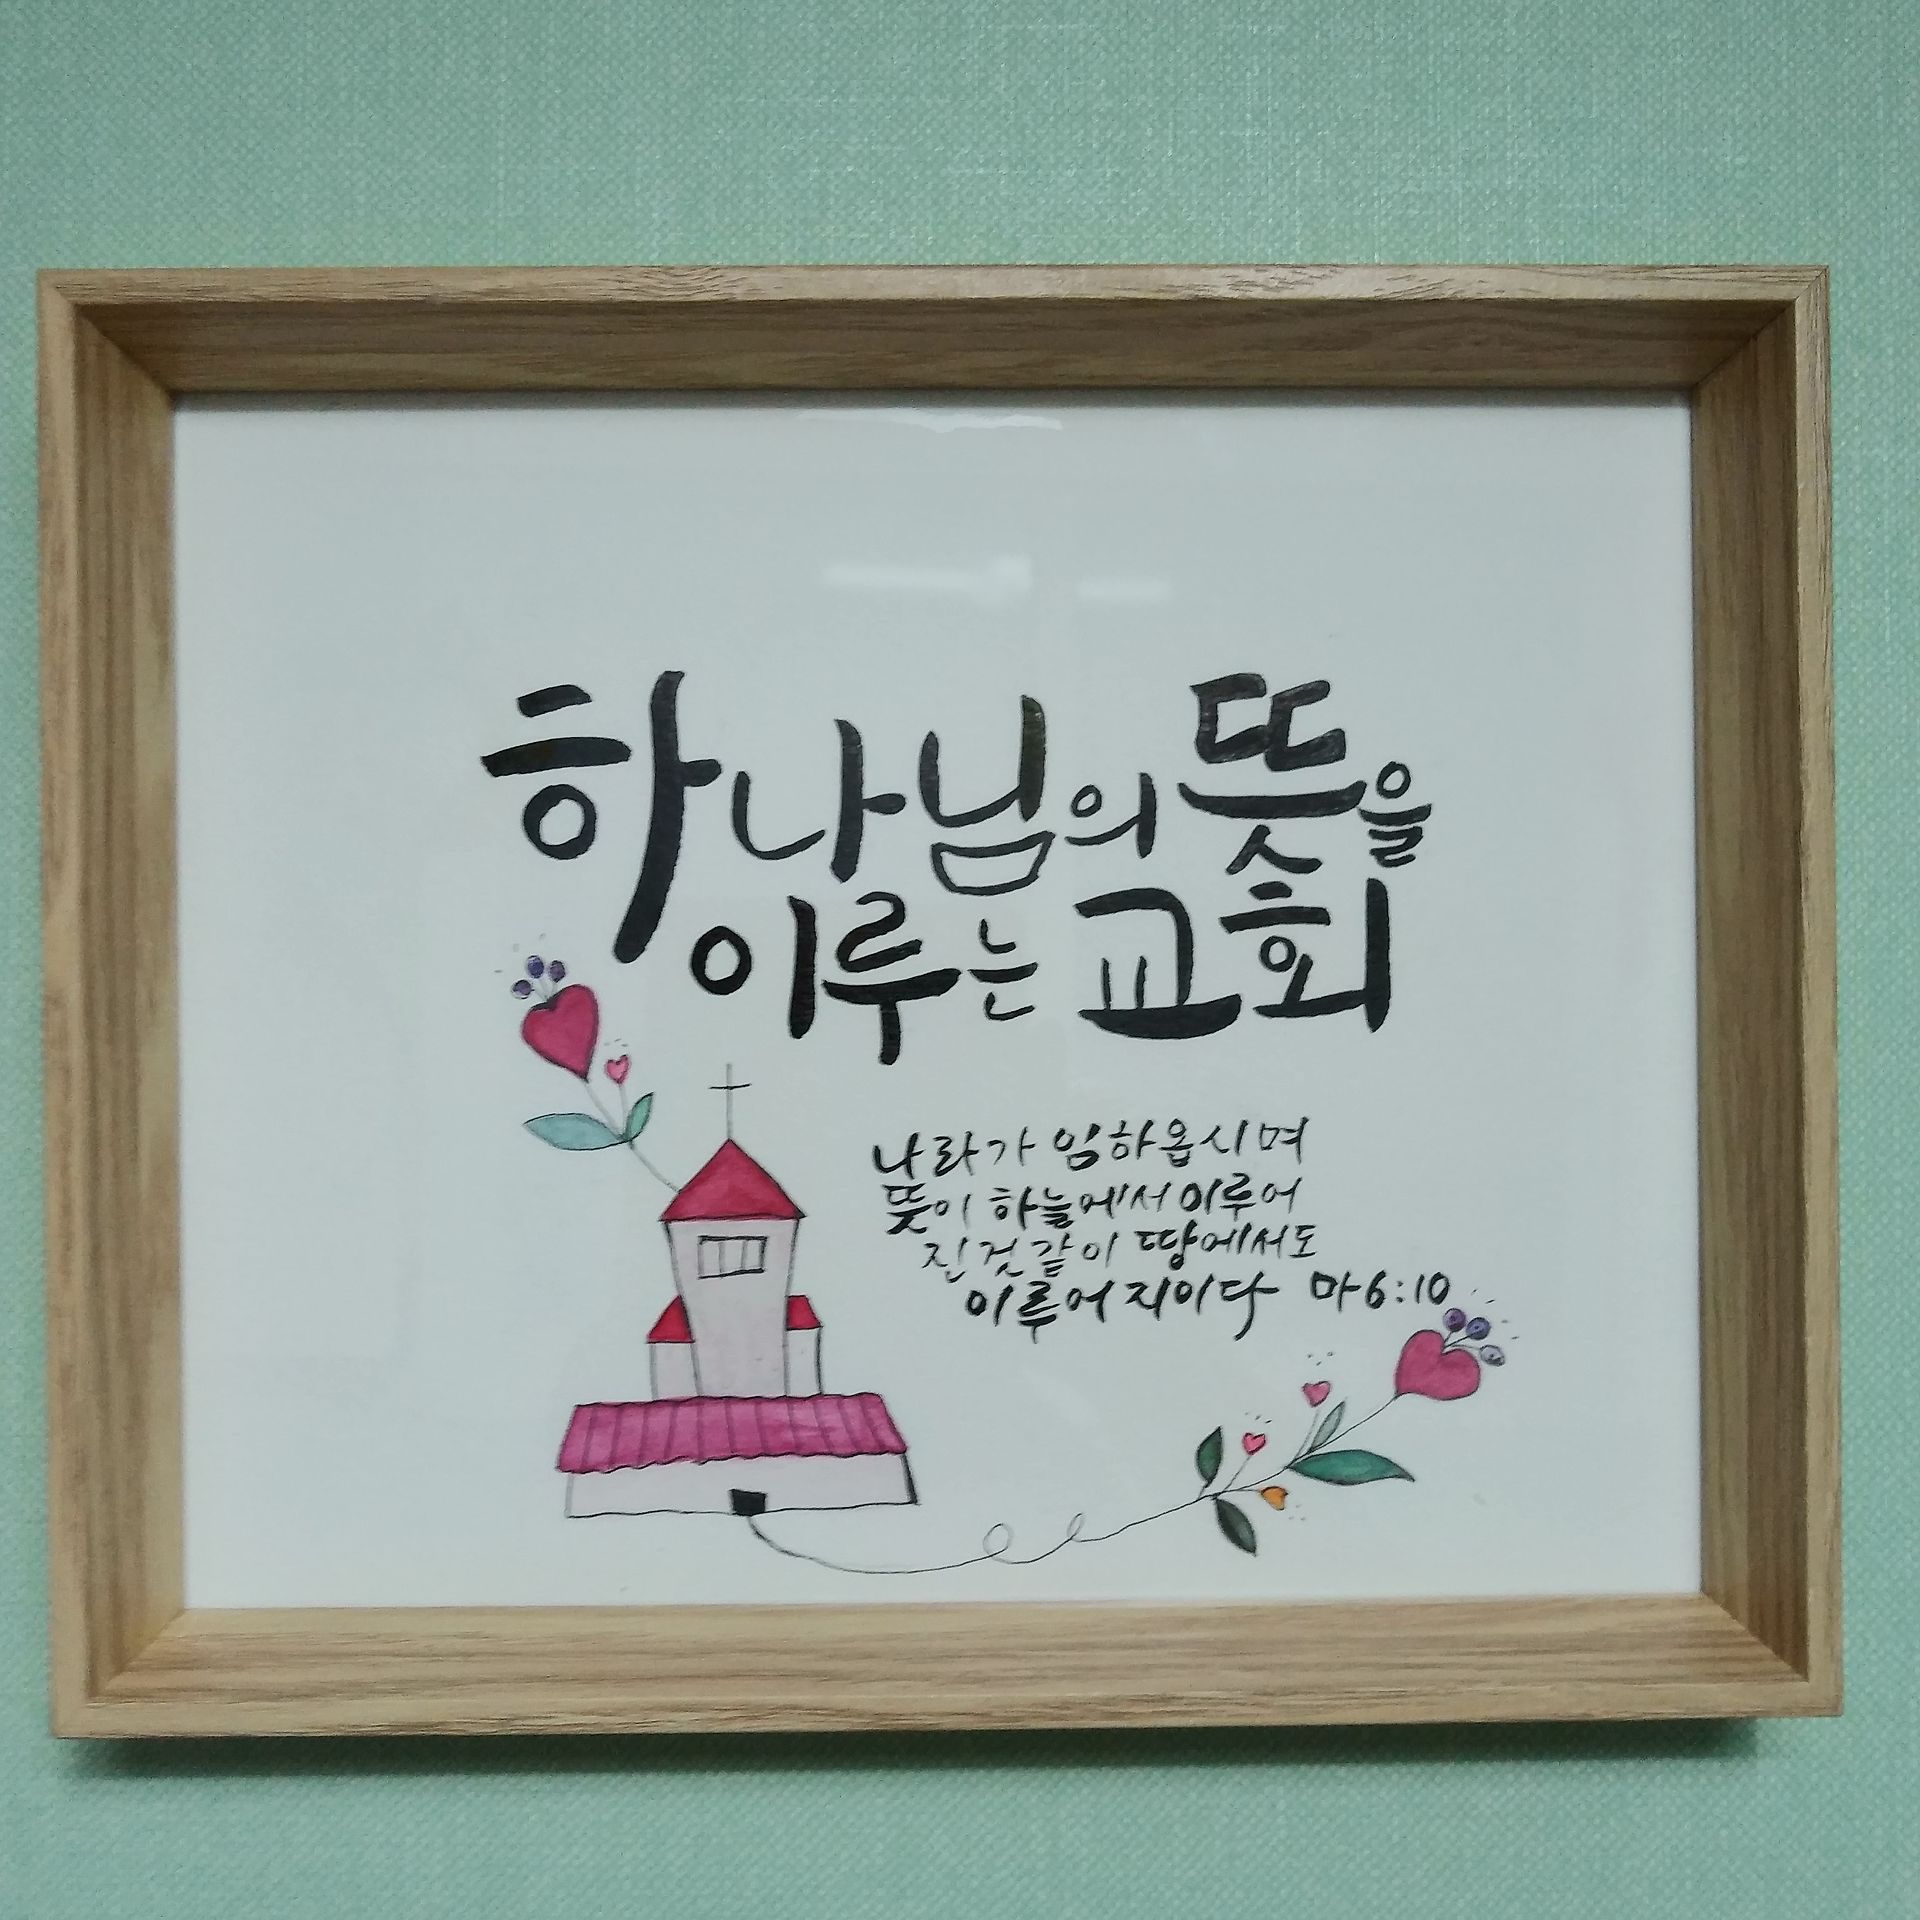 하나님의 뜻을
이루는 교회
나라가 임하옵시며
뜻이 하늘에서 이루어
진것같이 땅에서도
이루어지이다 마6:10